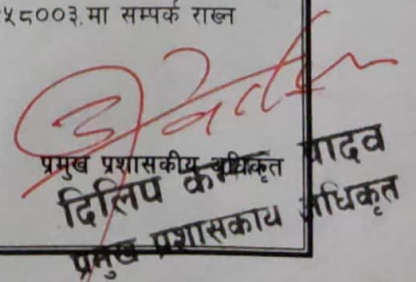 ५८००३ मा सम्पर्क राख्न
प्रमुख प्रशासकीय अधिकृत
दिलिप यादव
प्रमुख प्रशासकीय अधिकृत